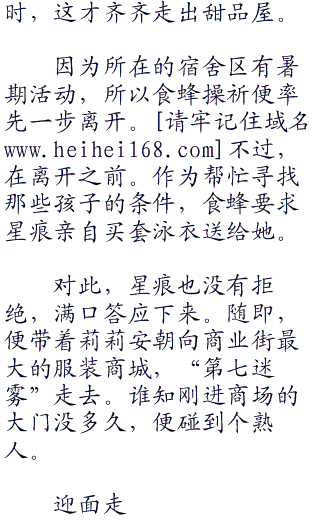 时，这才齐齐走出甜品屋。
因为所在的宿舍区有暑
期活动，所以食蜂操祈便率
先一步离开。[请牢记住域名
www.heihei168.com]不过，
在离开之前。作为帮忙寻找
那些孩子的条件，食蜂要求
星痕亲自买套泳衣送给她。
对此，星痕也没有拒
绝，满口答应下来。随即，
便带着莉莉安朝向商业街最
大的服装商城，“第七迷
雾”走去。谁知刚进商场的
大门没多久，便碰到个熟
人。
迎面走